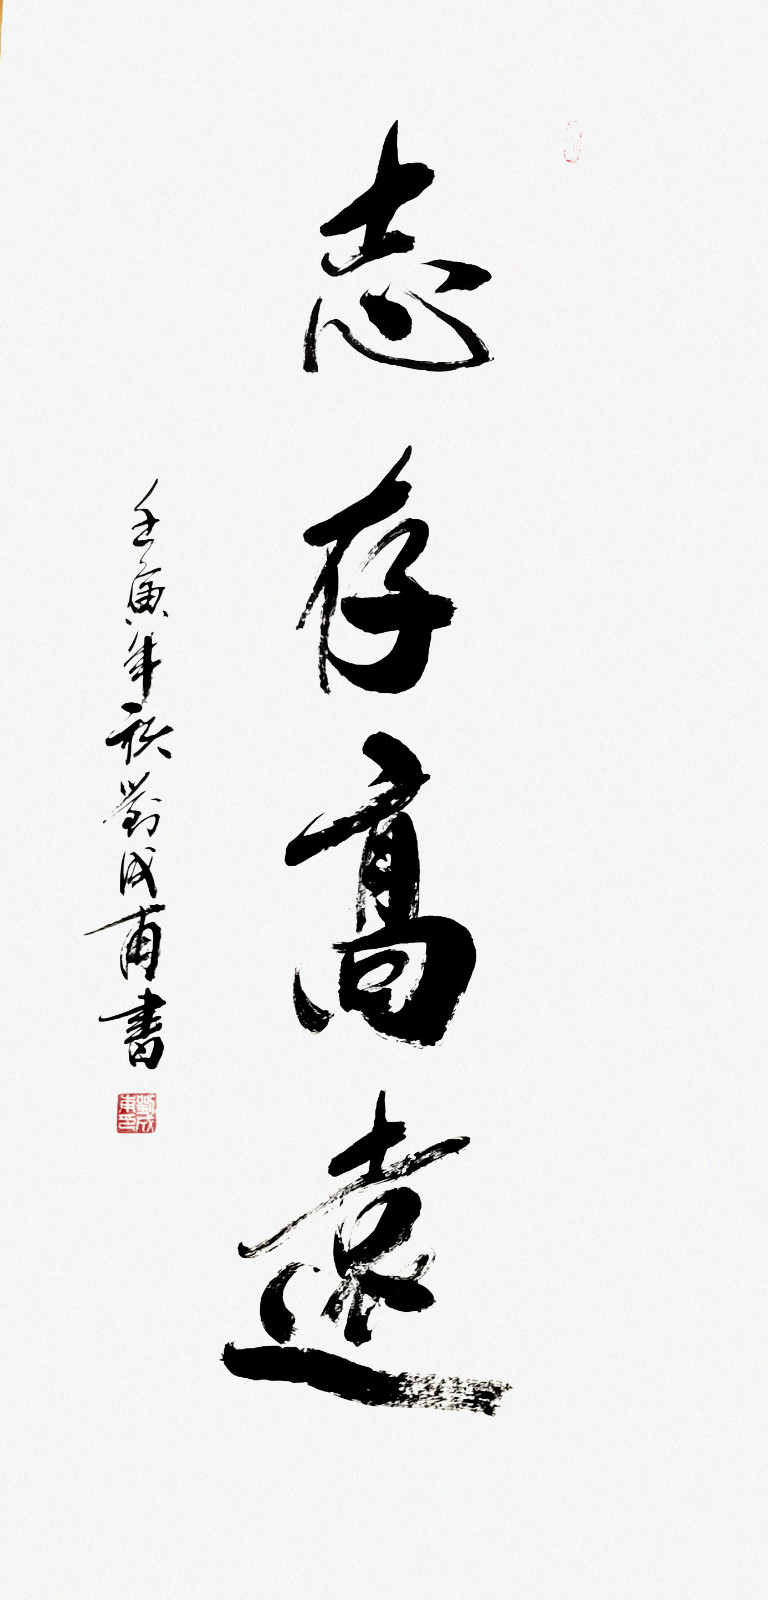 志存高遠
壬寅年秋劉成甫書